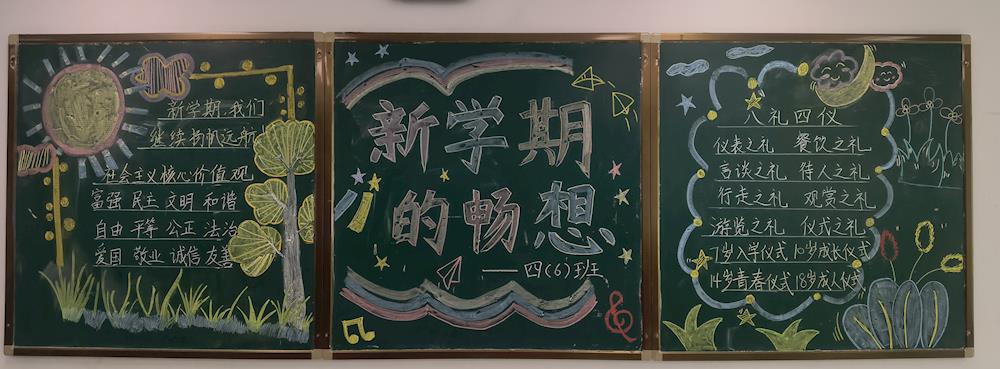 新学期,我们
继续扬帆远航!
社会主义核心价值观
富强 民主 文明 和谐
自由 平等 公正 法治
爱国 敬业 诚信 友善
新学期
的畅想
——四(6)班
八礼四仪
仪表之礼 餐饮之礼
言谈之礼 待人之礼
行走之礼 观赏之礼
游览之礼 仪式之礼
7岁入学仪式 10岁成长仪式
14岁青春仪式 18岁成人仪式